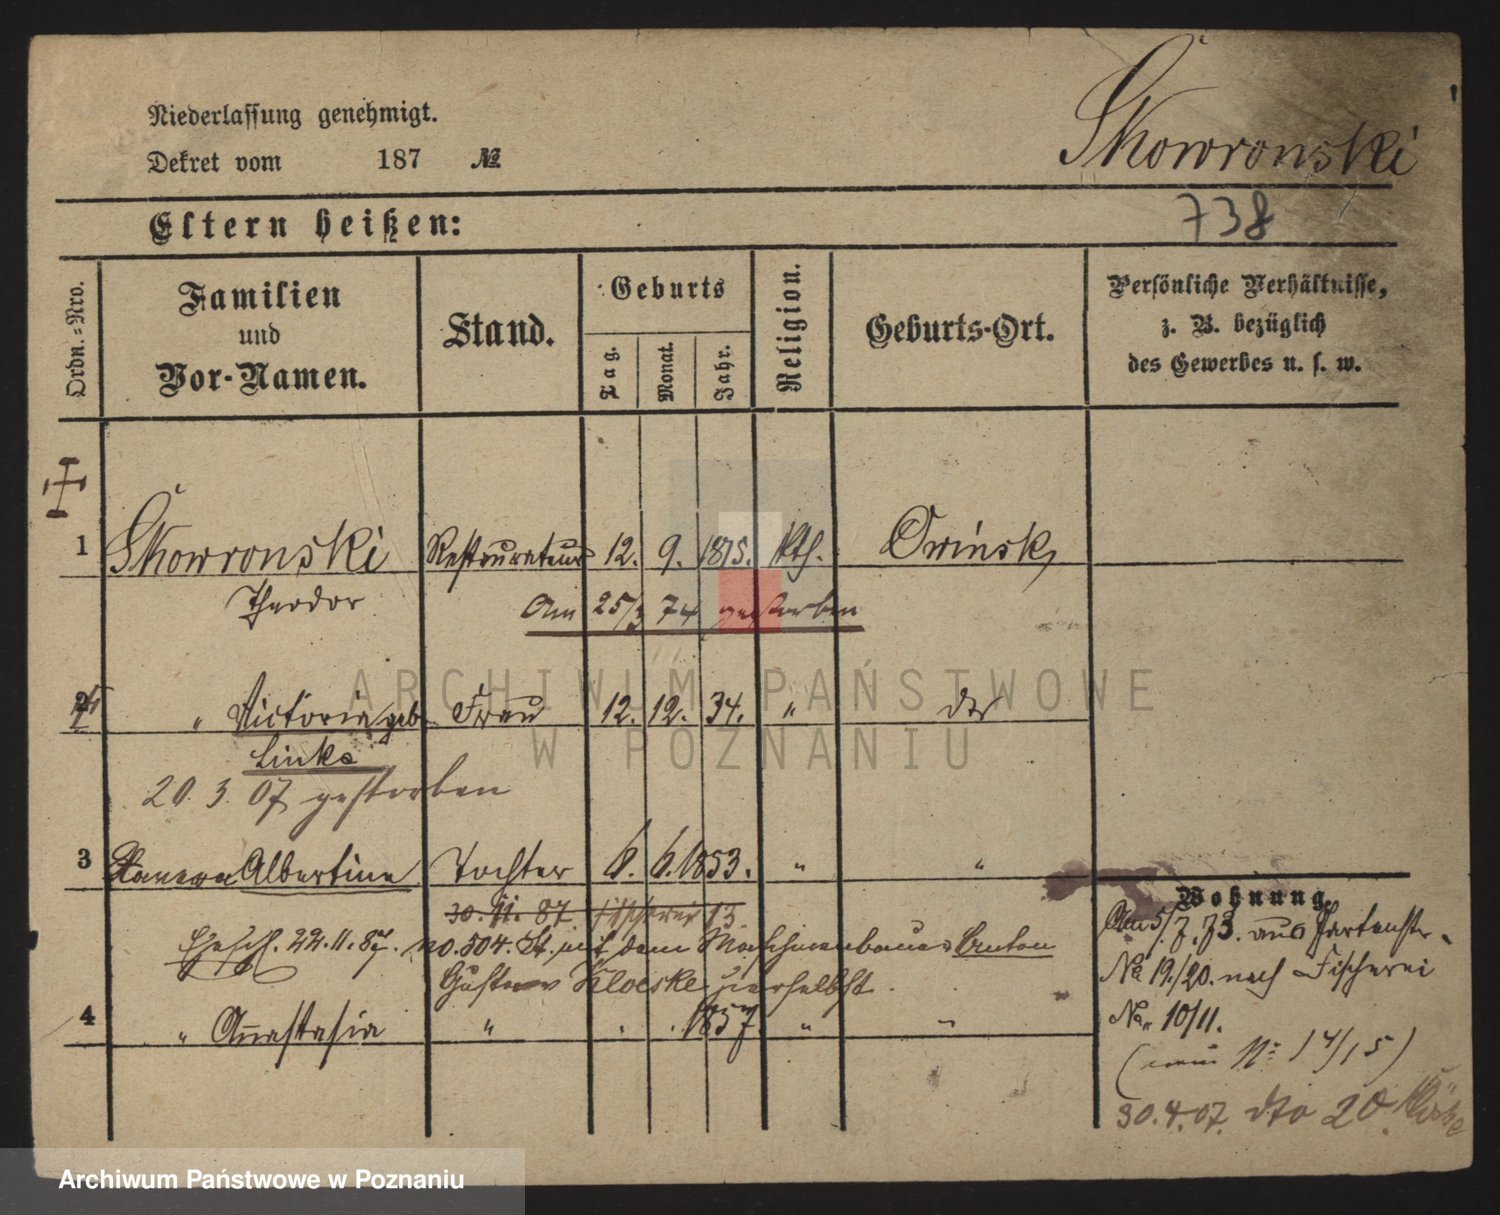 Niederlassung genehmigt.
Dekret vom 187 №
Skowronski
738
Eltern heißen:
Ordn.=Nro.
Familien
und
Vor-Namen.
Stand.
Geburts
Tag.
Monat.
Jahr.
Religion.
Geburts-Ort.
Persönliche Verhältnisse,
z. B. bezüglich
des Gewerbes u. s. w.
1 Skowronski Restaurateur 12. 9. 1815. kth. Owinsk
Theodor Am 25/3 74 gestorben
2 " Victoria geb Frau 12. 12. 34. " do
Linke
20. 3. 07 gestorben
3 Albertine Tochter 6. 6. 1853. " "
30. 11. 87 Fischerei 13
Ehesch. 22. 11. 87. No. 504. St. mit dem Maschinenbauer Anton
Gustav hierselbst.
4 " Anastasia " " " 1857. " "
Wohnung.
Am 5/7. 73. aus Gartenstr.
No 19/20. nach Fischerei
No 10/11.
( No 14/15)
30. 4. 07. dto 20
ARCHIWUM PAŃSTWOWE
W POZNANIU
Archiwum Państwowe w Poznaniu